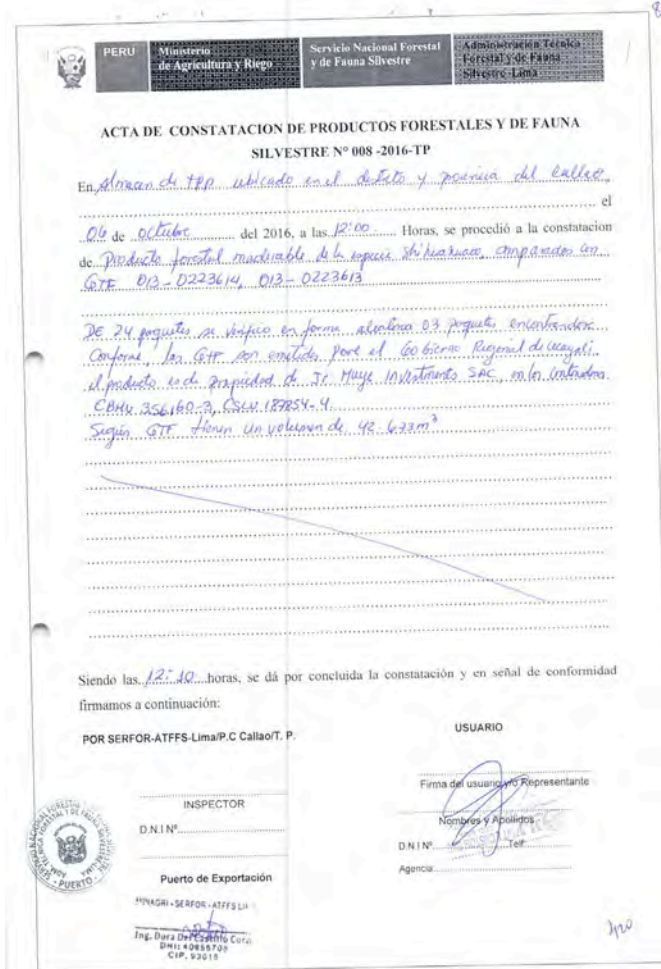 PERU
Ministerio
de Agricultura y Riego
Servicio Nacional Forestal
y de Fauna Silvestre
Administración Técnica
Forestal y de Fauna
Silvestre -Lima
ACTA DE CONSTATACION DE PRODUCTOS FORESTALES Y DE FAUNA
SILVESTRE Nº 008 -2016-TP
En Almacen de TPP ubicado en el distrito y provincia del Callao,
el
06 de octubre del 2016, a las 12:00 Horas, se procedió a la constatación
de Producto forestal maderable de la especie Shihuahuaco, amparados con
GTF 013-0223614, 013-0223613
DE 24 paquetes se verifico en forma aleatoria 03 paquetes encontrandose
Conforme, las GTF son emitidas el Gobierno Regional de Ucayali,
el producto es de propiedad de Jr Muye Investments SAC, en los contenedores
356160-3, 187854-4.
Según GTF tienen un volumen de 42.673m³
Siendo las 12:10 horas, se dá por concluida la constatación y en señal de conformidad
firmamos a continuación:
POR SERFOR-ATFFS-Lima/P.C Callao/T. P.
INSPECTOR
D.N.I Nº
Puerto de Exportación
SERFOR - ATFFS
Ing. Dora Del Castillo
DNI: 40855708
CIP. 93015
PUERTO
USUARIO
Firma del usuario y/o Representante
Nombres y Apellidos
D.N.I Nº Telf
Agencia